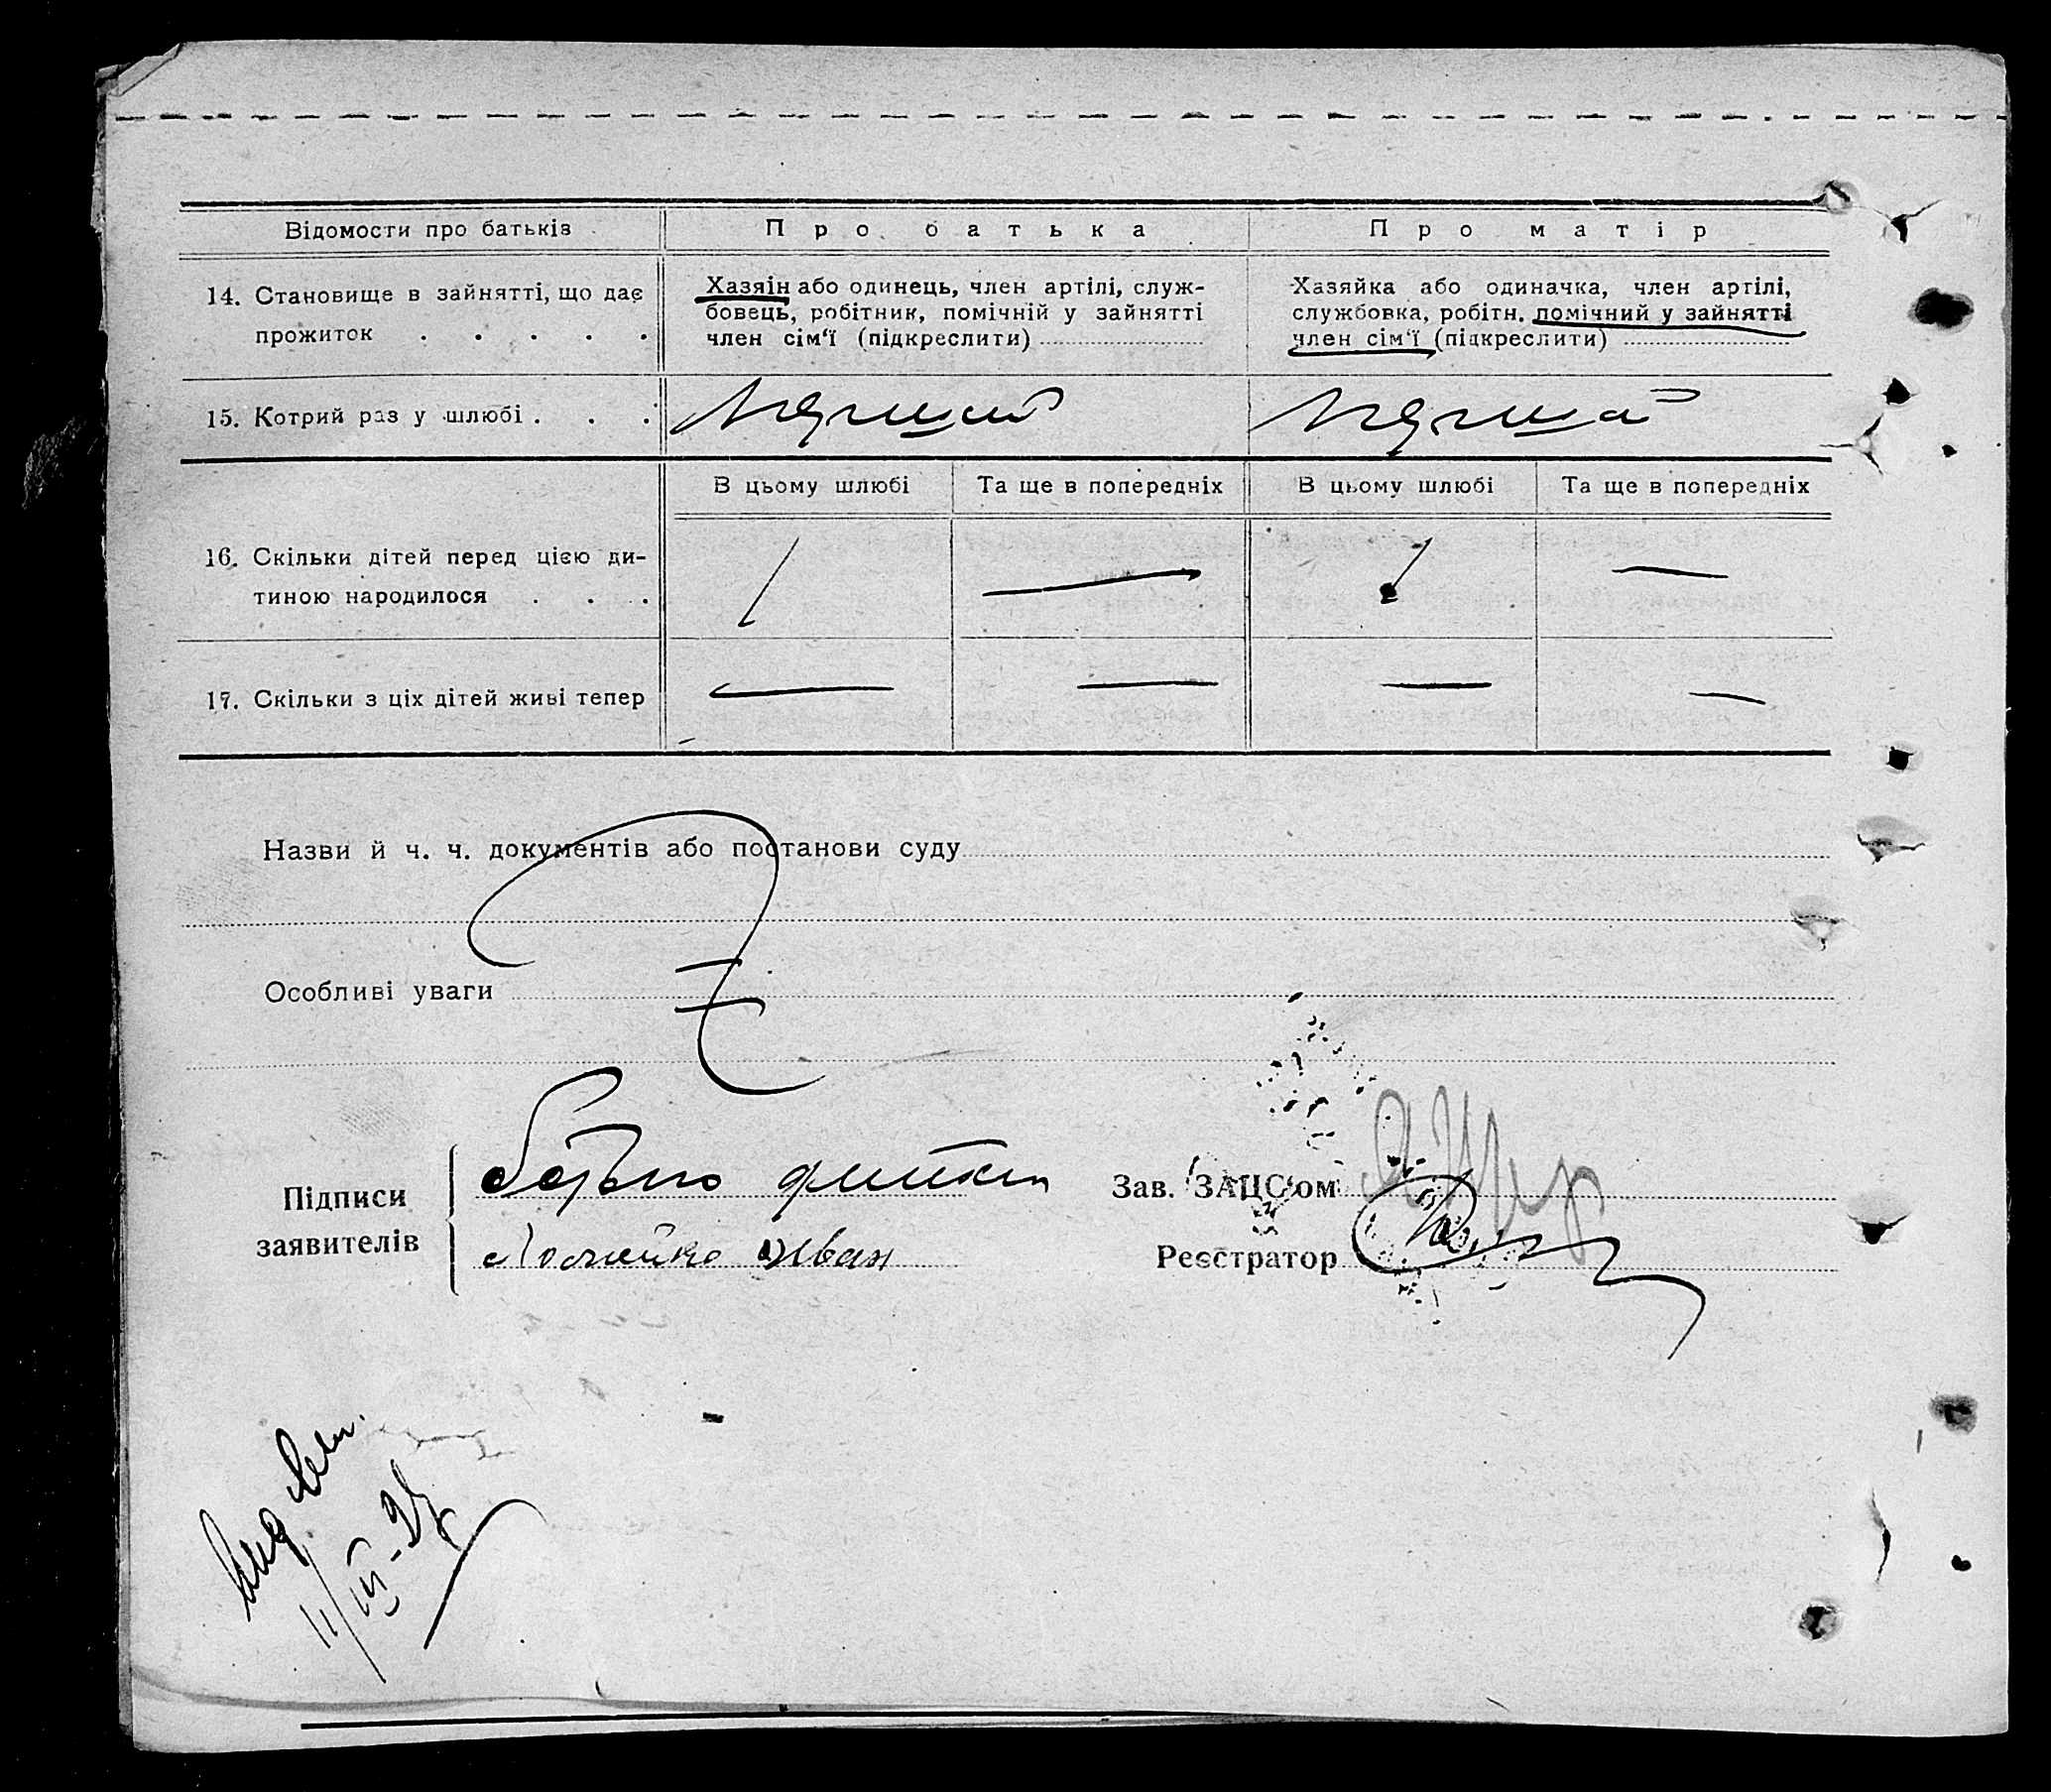 Відомости про батьків
Про батька
Про матір
14. Становище в зайнятті, що дає
прожиток . . . . .
Хазяін або одинець, член артілі, служ-
бовець, робітник, помічній у зайнятті
член сім'ї (підкреслити)
Хазяйка або одиначка, член артілі,
службовка, робітн. помічний у зайнятті
член сім'ї (підкреслити)
15. Котрий раз у шлюбі . . .
Перший
Перший
В цьому шлюбі
Та ще в попередніх
В цьому шлюбі
Та ще в попередніх
16. Скільки дітей перед цією ди-
тиною народилося . . .
1
—
1
—
17. Скільки з ціх дітей живі тепер
—
—
—
—
Назви й ч. ч. документів або постанови суду
Особливі уваги
Підписи
заявителів
Іван
Зав. ЗАЦС'ом
Реєстратор
11/III-27